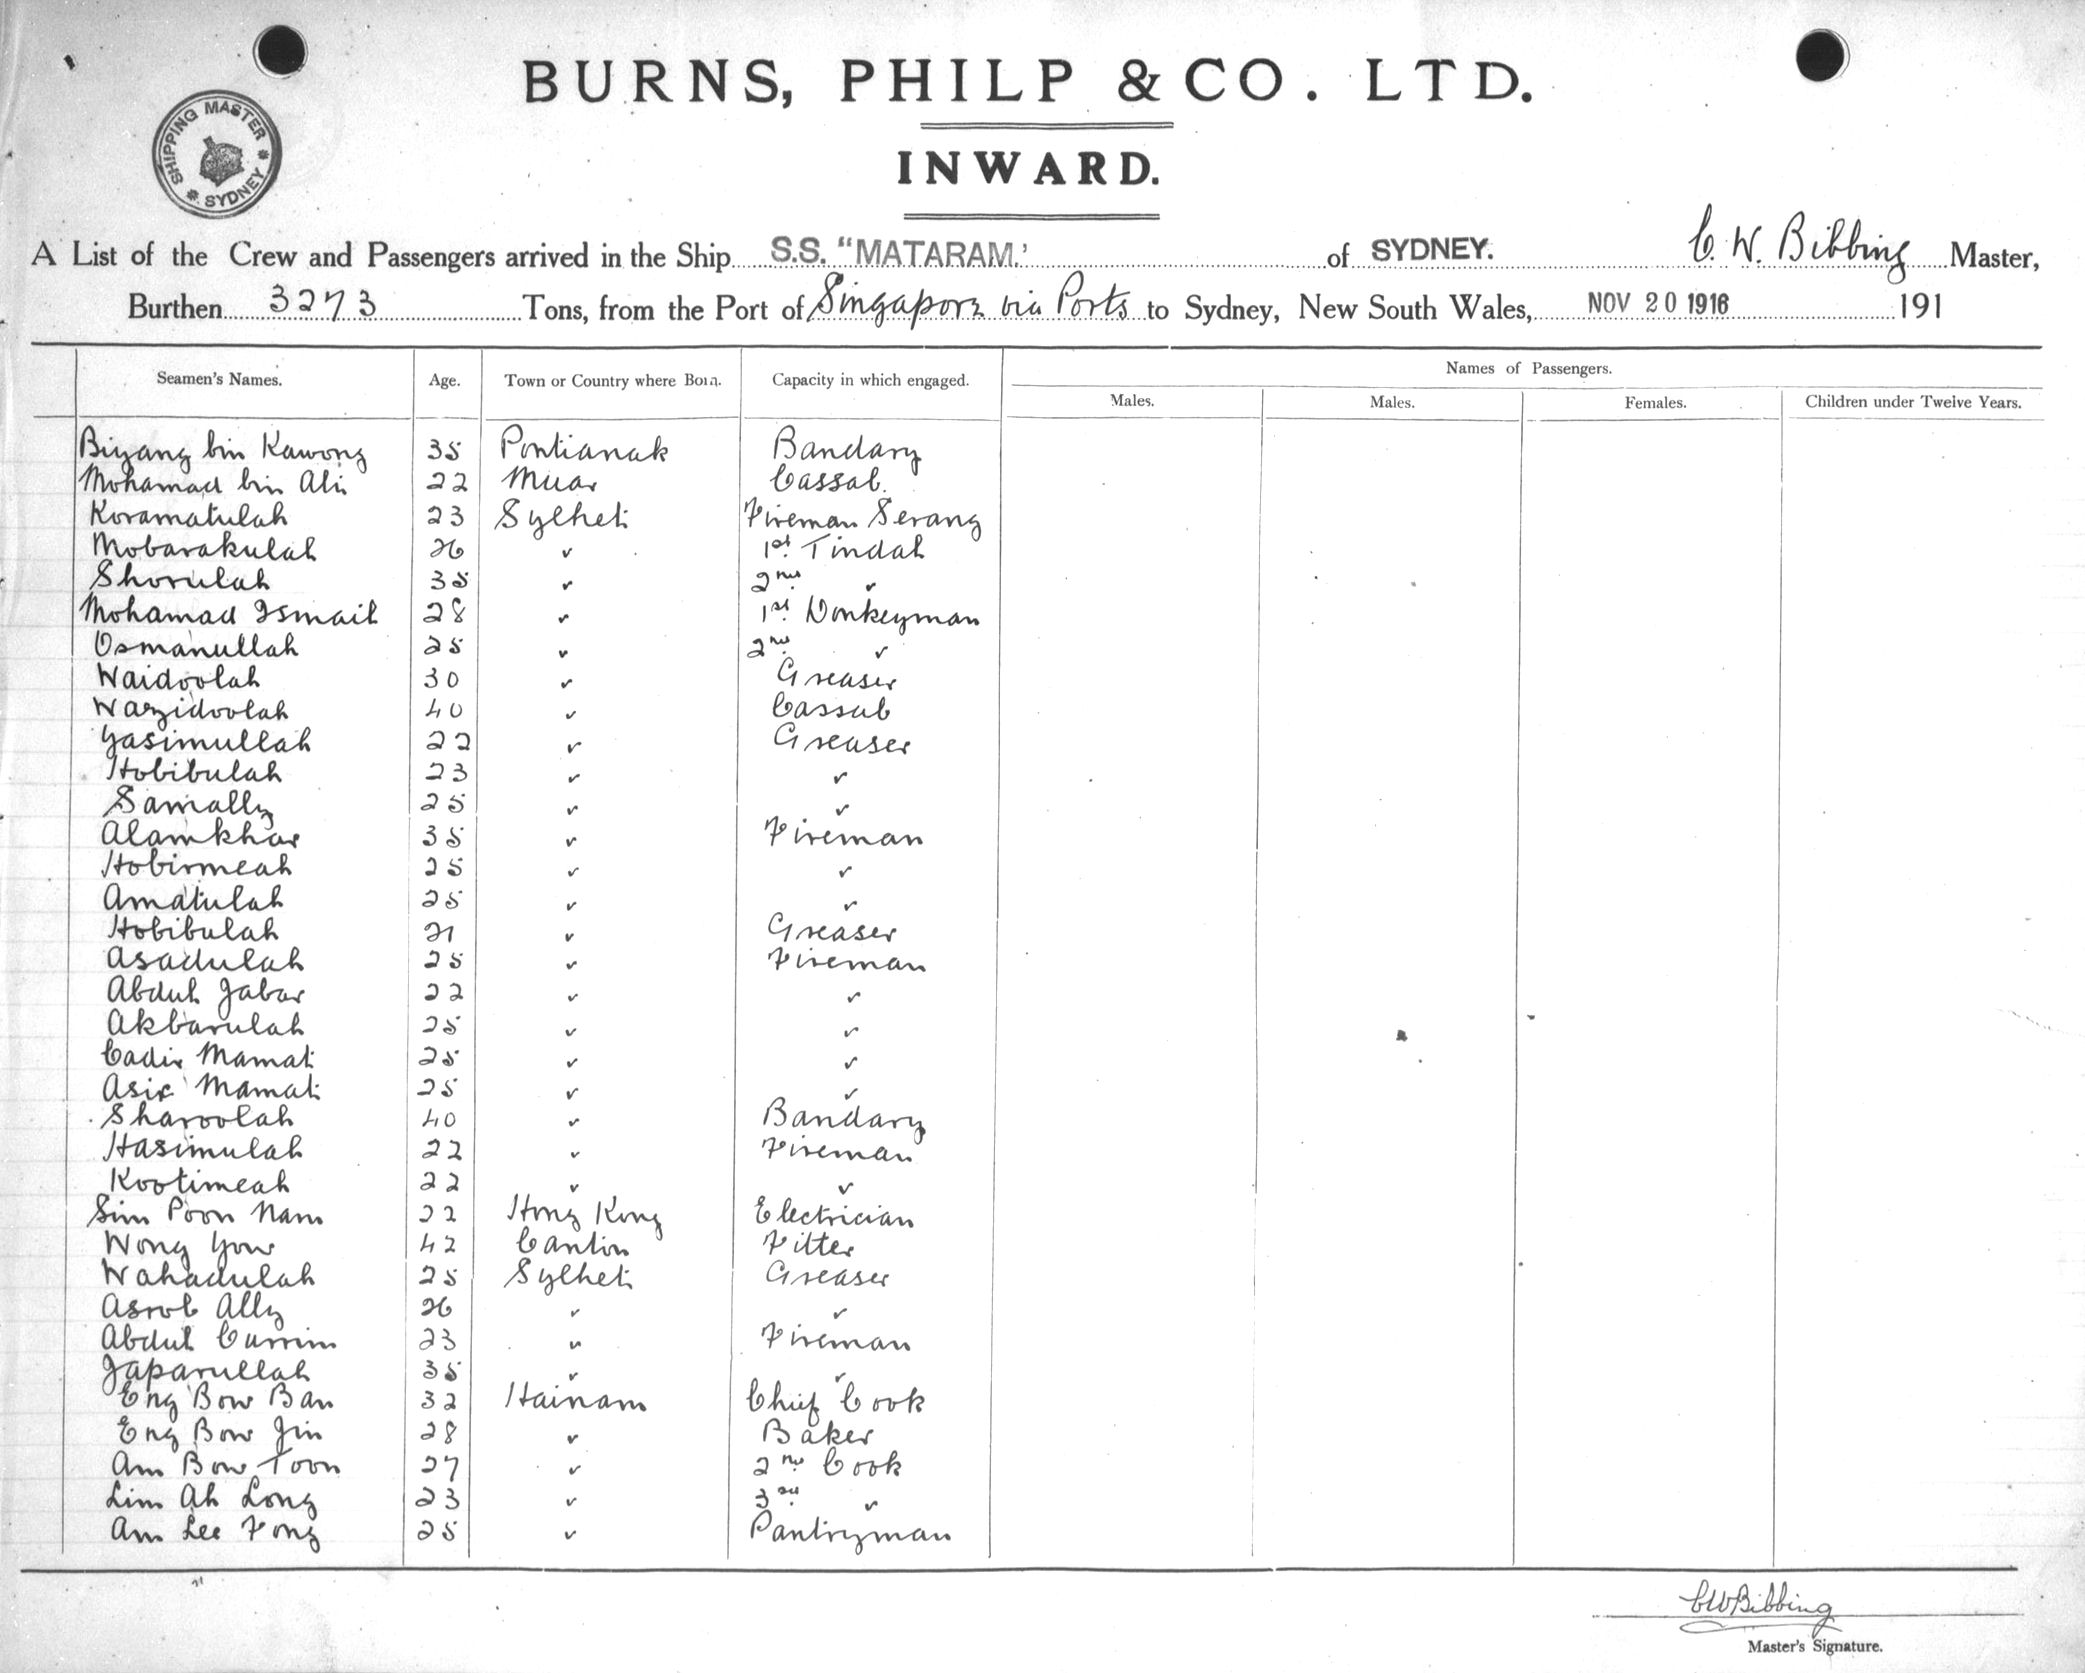 BURNS, PHILP & CO. LTD.
SHIPPING MASTER * SYDNEY *
INWARD.
A List of the Crew and Passengers arrived in the Ship S.S. "MATARAM." of SYDNEY. C. W. Bibbing Master,
Burthen 3273 Tons, from the Port of Singapore via Ports to Sydney, New South Wales, NOV 20 1916 191
Names of Passengers.
Seamen's Names. Age. Town or Country where Born. Capacity in which engaged. Males. Males. Females. Children under Twelve Years.
Biyang bin Kawong 35 Pontianak Bandary
Mohamad bin Ali 22 Muar Cassab.
Koramatulah 23 Sylhet Fireman Serang
Mobarakulah 26 " 1st Tindal
Shorulah 35 " 2nd "
Mohamad Ismail 28 " 1st Donkeyman
Osmanullah 25 " 2nd "
Waidoolah 30 " Greaser
Wazidoolah 40 " Cassab
Yasimullah 22 " Greaser
Hobibulah 23 " "
Samally 25 " "
Alamkhar 35 " Fireman
Hobirmeah 25 " "
Amatulah 25 " "
Hobibulah 21 " Greaser
Asadulah 25 " Fireman
Abdul Jabar 22 " "
Akbarulah 25 " "
Cadir Mamat 25 " "
Asix Mamat 25 " "
Sharoolah 40 " Bandary
Hasimulah 22 " Fireman
Kootimeah 22 " "
Sim Poon Nam 22 Hong Kong Electrician
Wong Yow 42 Canton Fitter
Wahadulah 25 Sylhet Greaser
Asrob Ally 26 " "
Abdul Currim 23 " Fireman
Japarullah 35 " "
Eng Bow Ban 32 Hainam Chief Cook
Eng Bow Jin 28 " Baker
Am Bow Toon 27 " 2nd Cook
Lim Ah Long 23 " 3rd "
Am Lee Fong 25 " Pantryman
CWBibbing
Master's Signature.